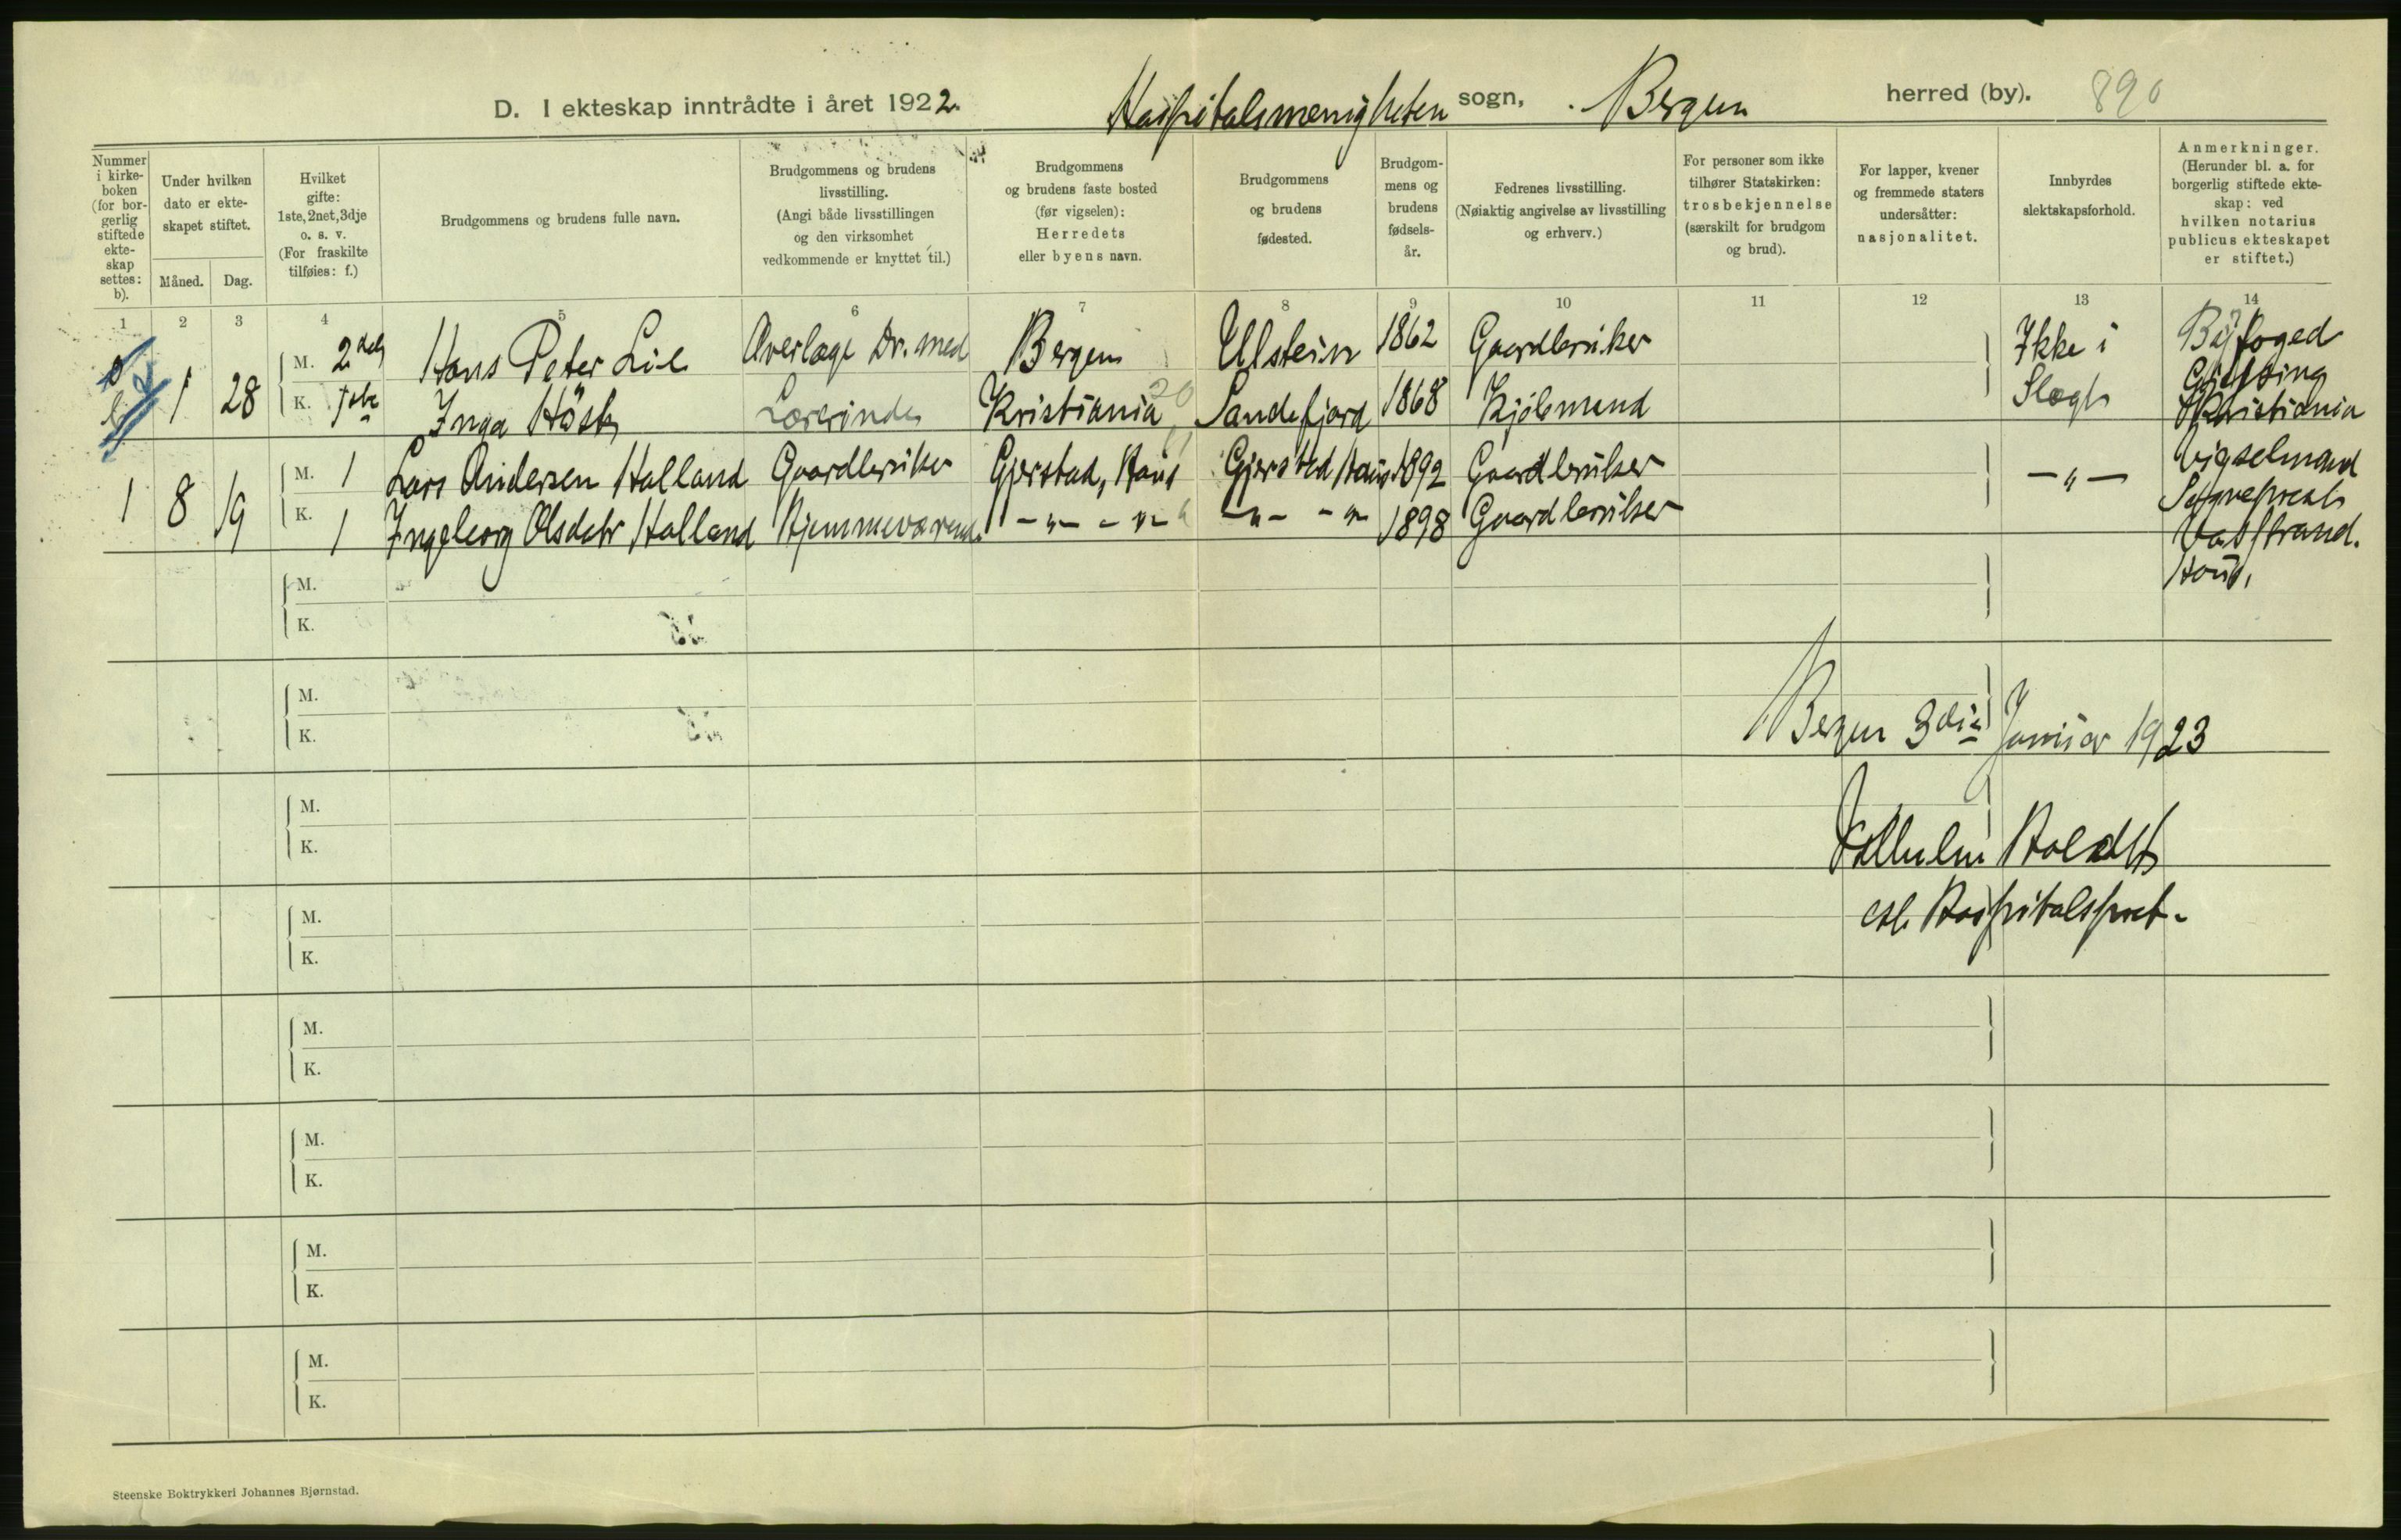 D. I ekteskap inntrådte i året 1922. Hospitalsmenigheten sogn, Bergen herred (by). 890
Nummer i kirke-boken (for bor-gerlig stiftede ekte-skap settes: b).
Under hvilken dato er ekte-skapet stiftet.
Måned. Dag.
Hvilket gifte: 1ste, 2net, 3dje o. s. v. (For fraskilte tilføies: f.)
Brudgommens og brudens fulle navn.
Brudgommens og brudens livsstilling. (Angi både livsstillingen og den virksomhet vedkommende er knyttet til.)
Brudgommens og brudens faste bosted (før vigselen): Herredets eller byens navn.
Brudgommens og brudens fødested.
Brudgom-mens og brudens fødsels-år.
Fedrenes livsstilling. (Nøiaktig angivelse av livsstilling og erhverv.)
For personer som ikke tilhører Statskirken: trosbekjennelse (særskilt for brudgom og brud).
For lapper, kvener og fremmede staters undersåtter: nasjonalitet.
Innbyrdes slektskapsforhold.
Anmerkninger. (Herunder bl. a. for borgerlig stiftede ekte-skap: ved hvilken notarius publicus ekteskapet er stiftet.)
1 2 3 4 5 6 7 8 9 10 11 12 13 14
1 28 M. 2 Hans Peter Lie Overlæge Dr. med Bergen Ulstein 1862 Gaardbruker Ikke i Slægt
K. Inga Höst Lærerinde Kristiania Sandefjord 1868 Kjöbmand
Byfoged
Kristiania
1 8 19 M. 1 Lars Andersen Halland Gaardbruker Gjerstad, Haus Gjerstad Haus 1892 Gaardbruker -"-
K. 1 Ingeborg Olsdatr Halland Hjemmeværend. -"- -"- -"- -"- 1898 Gaardbruker
Vigselmand
Sogneprest
Vatstrand.
Haus.
M.
K.
M.
K.
Bergen 3die Januar 1923
M.
K.
Vilhelm Holdt
M.
K.
cst. Hospitalsprest.
M.
K.
M.
K.
M.
K.
M.
K.
Steenske Boktrykkeri Johannes Bjørnstad.